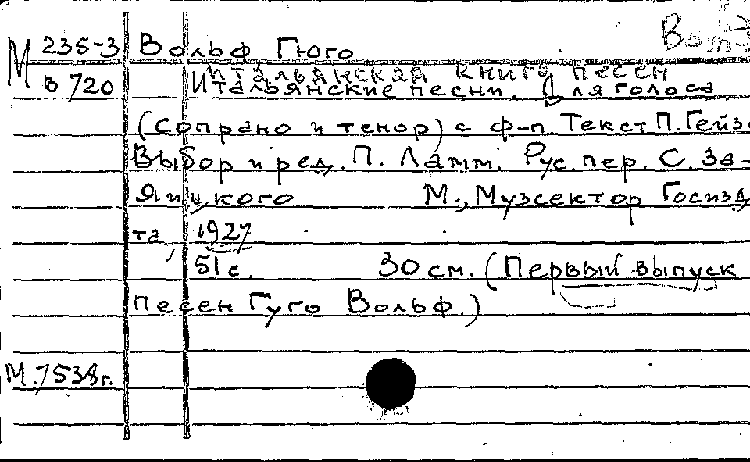 М 235-3 Вольф Гюго Вок
В 720 Итальянская книга песен
Итальянские песни. Для голоса
(сопрано и тенор) с ф-п. Текст П. Гейзе
Выбор и ред. П. Ламм. Рус. пер. С. За-
яицкого М., Музсектор Госизда
та, 1927
51 с. 30 см. (Первый выпуск
песен Гуго Вольф.)
М. 7538 г.